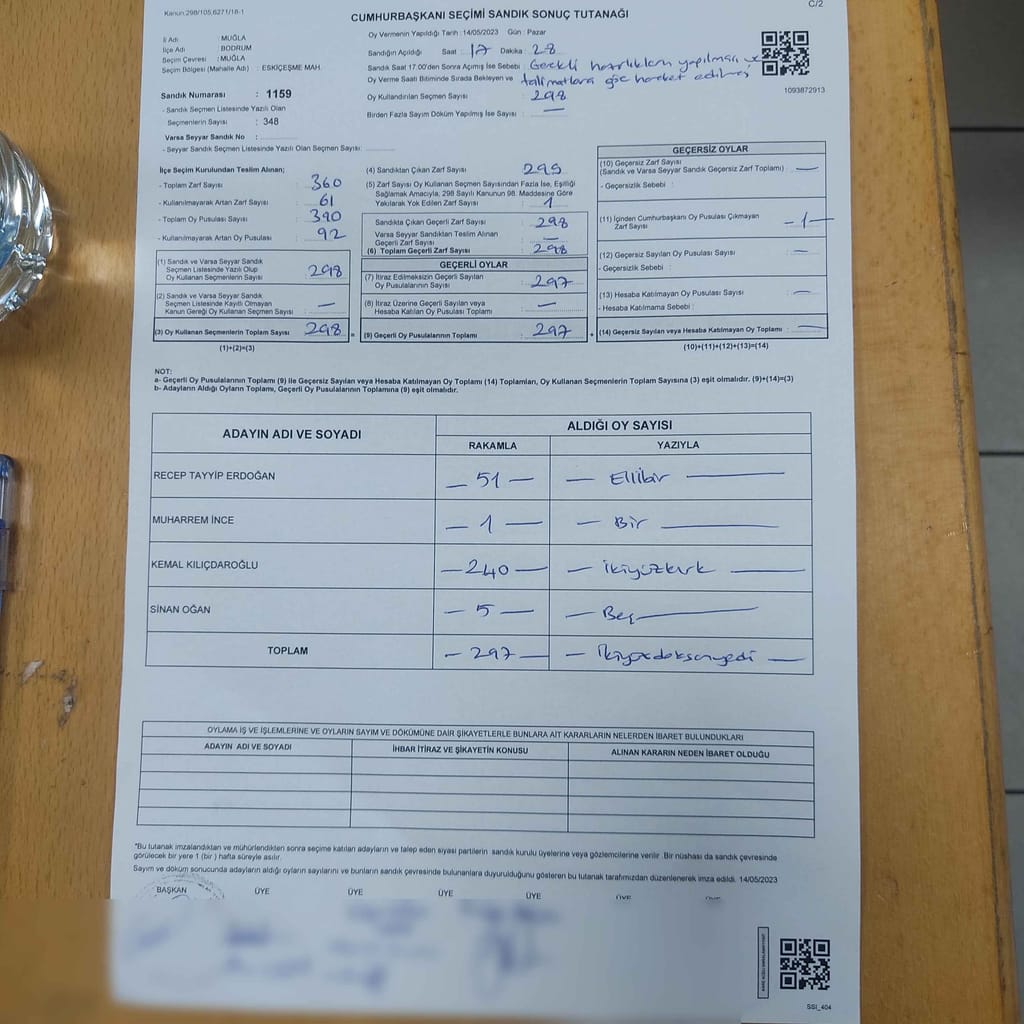 Kanun:298/105,6271/18-1
C/2
CUMHURBAŞKANI SEÇİMİ SANDIK SONUÇ TUTANAĞI
İl Adı : MUĞLA
İlçe Adı : BODRUM
Seçim Çevresi : MUĞLA
Seçim Bölgesi (Mahalle Adı) : ESKİÇEŞME MAH.
Sandık Numarası : 1159
- Sandık Seçmen Listesinde Yazılı Olan
Seçmenlerin Sayısı : 348
Varsa Seyyar Sandık No :
- Seyyar Sandık Seçmen Listesinde Yazılı Olan Seçmen Sayısı:
Oy Vermenin Yapıldığı Tarih :14/05/2023 Gün : Pazar
Sandığın Açıldığı Saat : 17 Dakika : 28
Sandık Saat 17.00'den Sonra Açımış İse Sebebi : Gerekli hazırlıkların yapılması ve
Oy Verme Saati Bitiminde Sırada Bekleyen ve talimatlara göre hareket edilmesi
Oy Kullandırılan Seçmen Sayısı : 298
Birden Fazla Sayım Döküm Yapılmış İse Sayısı : —
1093872913
İlçe Seçim Kurulundan Teslim Alınan;
- Toplam Zarf Sayısı : 360
- Kullanılmayarak Artan Zarf Sayısı : 61
- Toplam Oy Pusulası Sayısı : 390
- Kullanılmayarak Artan Oy Pusulası : 92
(1) Sandık ve Varsa Seyyar Sandık
Seçmen Listesinde Yazılı Olup
Oy Kullanan Seçmenlerin Sayısı : 298
(2) Sandık ve Varsa Seyyar Sandık
Seçmen Listesinde Kayıtlı Olmayan
Kanun Gereği Oy Kullanan Seçmen Sayısı : —
(3) Oy Kullanan Seçmenlerin Toplam Sayısı : 298 =
(1)+(2)=(3)
(4) Sandıktan Çıkan Zarf Sayısı : 299
(5) Zarf Sayısı Oy Kullanan Seçmen Sayısından Fazla İse, Eşitliği
Sağlamak Amacıyla, 298 Sayılı Kanunun 98. Maddesine Göre
Yakılarak Yok Edilen Zarf Sayısı : 1
Sandıkta Çıkan Geçerli Zarf Sayısı : 298
Varsa Seyyar Sandıktan Teslim Alınan
Geçerli Zarf Sayısı : —
(6) Toplam Geçerli Zarf Sayısı : 298
GEÇERLİ OYLAR
(7) İtiraz Edilmeksizin Geçerli Sayılan
Oy Pusulalarının Sayısı : 297
(8) İtiraz Üzerine Geçerli Sayılan veya
Hesaba Katılan Oy Pusulaları Toplamı : —
(9) Geçerli Oy Pusulalarının Toplamı : 297 +
GEÇERSİZ OYLAR
(10) Geçersiz Zarf Sayısı
(Sandık ve Varsa Seyyar Sandık Geçersiz Zarf Toplamı) : —
- Geçersizlik Sebebi :
(11) İçinden Cumhurbaşkanı Oy Pusulası Çıkmayan
Zarf Sayısı : -1-
(12) Geçersiz Oy Pusulası Sayısı : —
- Geçersizlik Sebebi :
(13) Hesaba Katılmayan Oy Pusulası Sayısı : —
- Hesaba Katılmama Sebebi :
(14) Geçersiz Sayılan veya Hesaba Katılmayan Oy Toplamı : —
(10)+(11)+(12)+(13)=(14)
NOT:
a- Geçerli Oy Pusulalarının Toplamı (9) ile Geçersiz Sayılan veya Hesaba Katılmayan Oy Toplamı (14) Toplamları, Oy Kullanan Seçmenlerin Toplam Sayısına (3) eşit olmalıdır. (9)+(14)=(3)
b- Adayların Aldığı Oyların Toplamı, Geçerli Oy Pusulalarının Toplamına (9) eşit olmalıdır.
ADAYIN ADI VE SOYADI
ALDIĞI OY SAYISI
RAKAMLA YAZIYLA
RECEP TAYYİP ERDOĞAN — 51 — — Ellibir —
MUHARREM İNCE — 1 — — Bir —
KEMAL KILIÇDAROĞLU — 240 — — İkiyüzkırk —
SİNAN OĞAN — 5 — — Beş —
TOPLAM — 297 — — İkiyüzdoksanyedi —
OYLAMA İŞ VE İŞLEMLERİNE VE OYLARIN SAYIM VE DÖKÜMÜNE DAİR ŞİKAYETLERLE BUNLARA AİT KARARLARIN NELERDEN İBARET BULUNDUKLARI
ADAYIN ADI VE SOYADI İHBAR İTİRAZ VE ŞİKAYETİN KONUSU ALINAN KARARIN NEDEN İBARET OLDUĞU
*Bu tutanak imzalandıktan ve mühürlendikten sonra seçime katılan adayların ve talep eden siyasi partilerin sandık kurulu üyelerine veya gözlemcilerine verilir .Bir nüshası da sandık çevresinde
görülecek bir yere 1 (bir ) hafta süreyle asılır.
Sayım ve döküm sonucunda adayların aldığı oyların sayılarını ve bunların sandık çevresinde bulunanlara duyurulduğunu gösteren bu tutanak tarafımızdan düzenlenerek imza edildi. 14/05/2023
BAŞKAN ÜYE ÜYE ÜYE ÜYE ÜYE ÜYE
SSİ_404